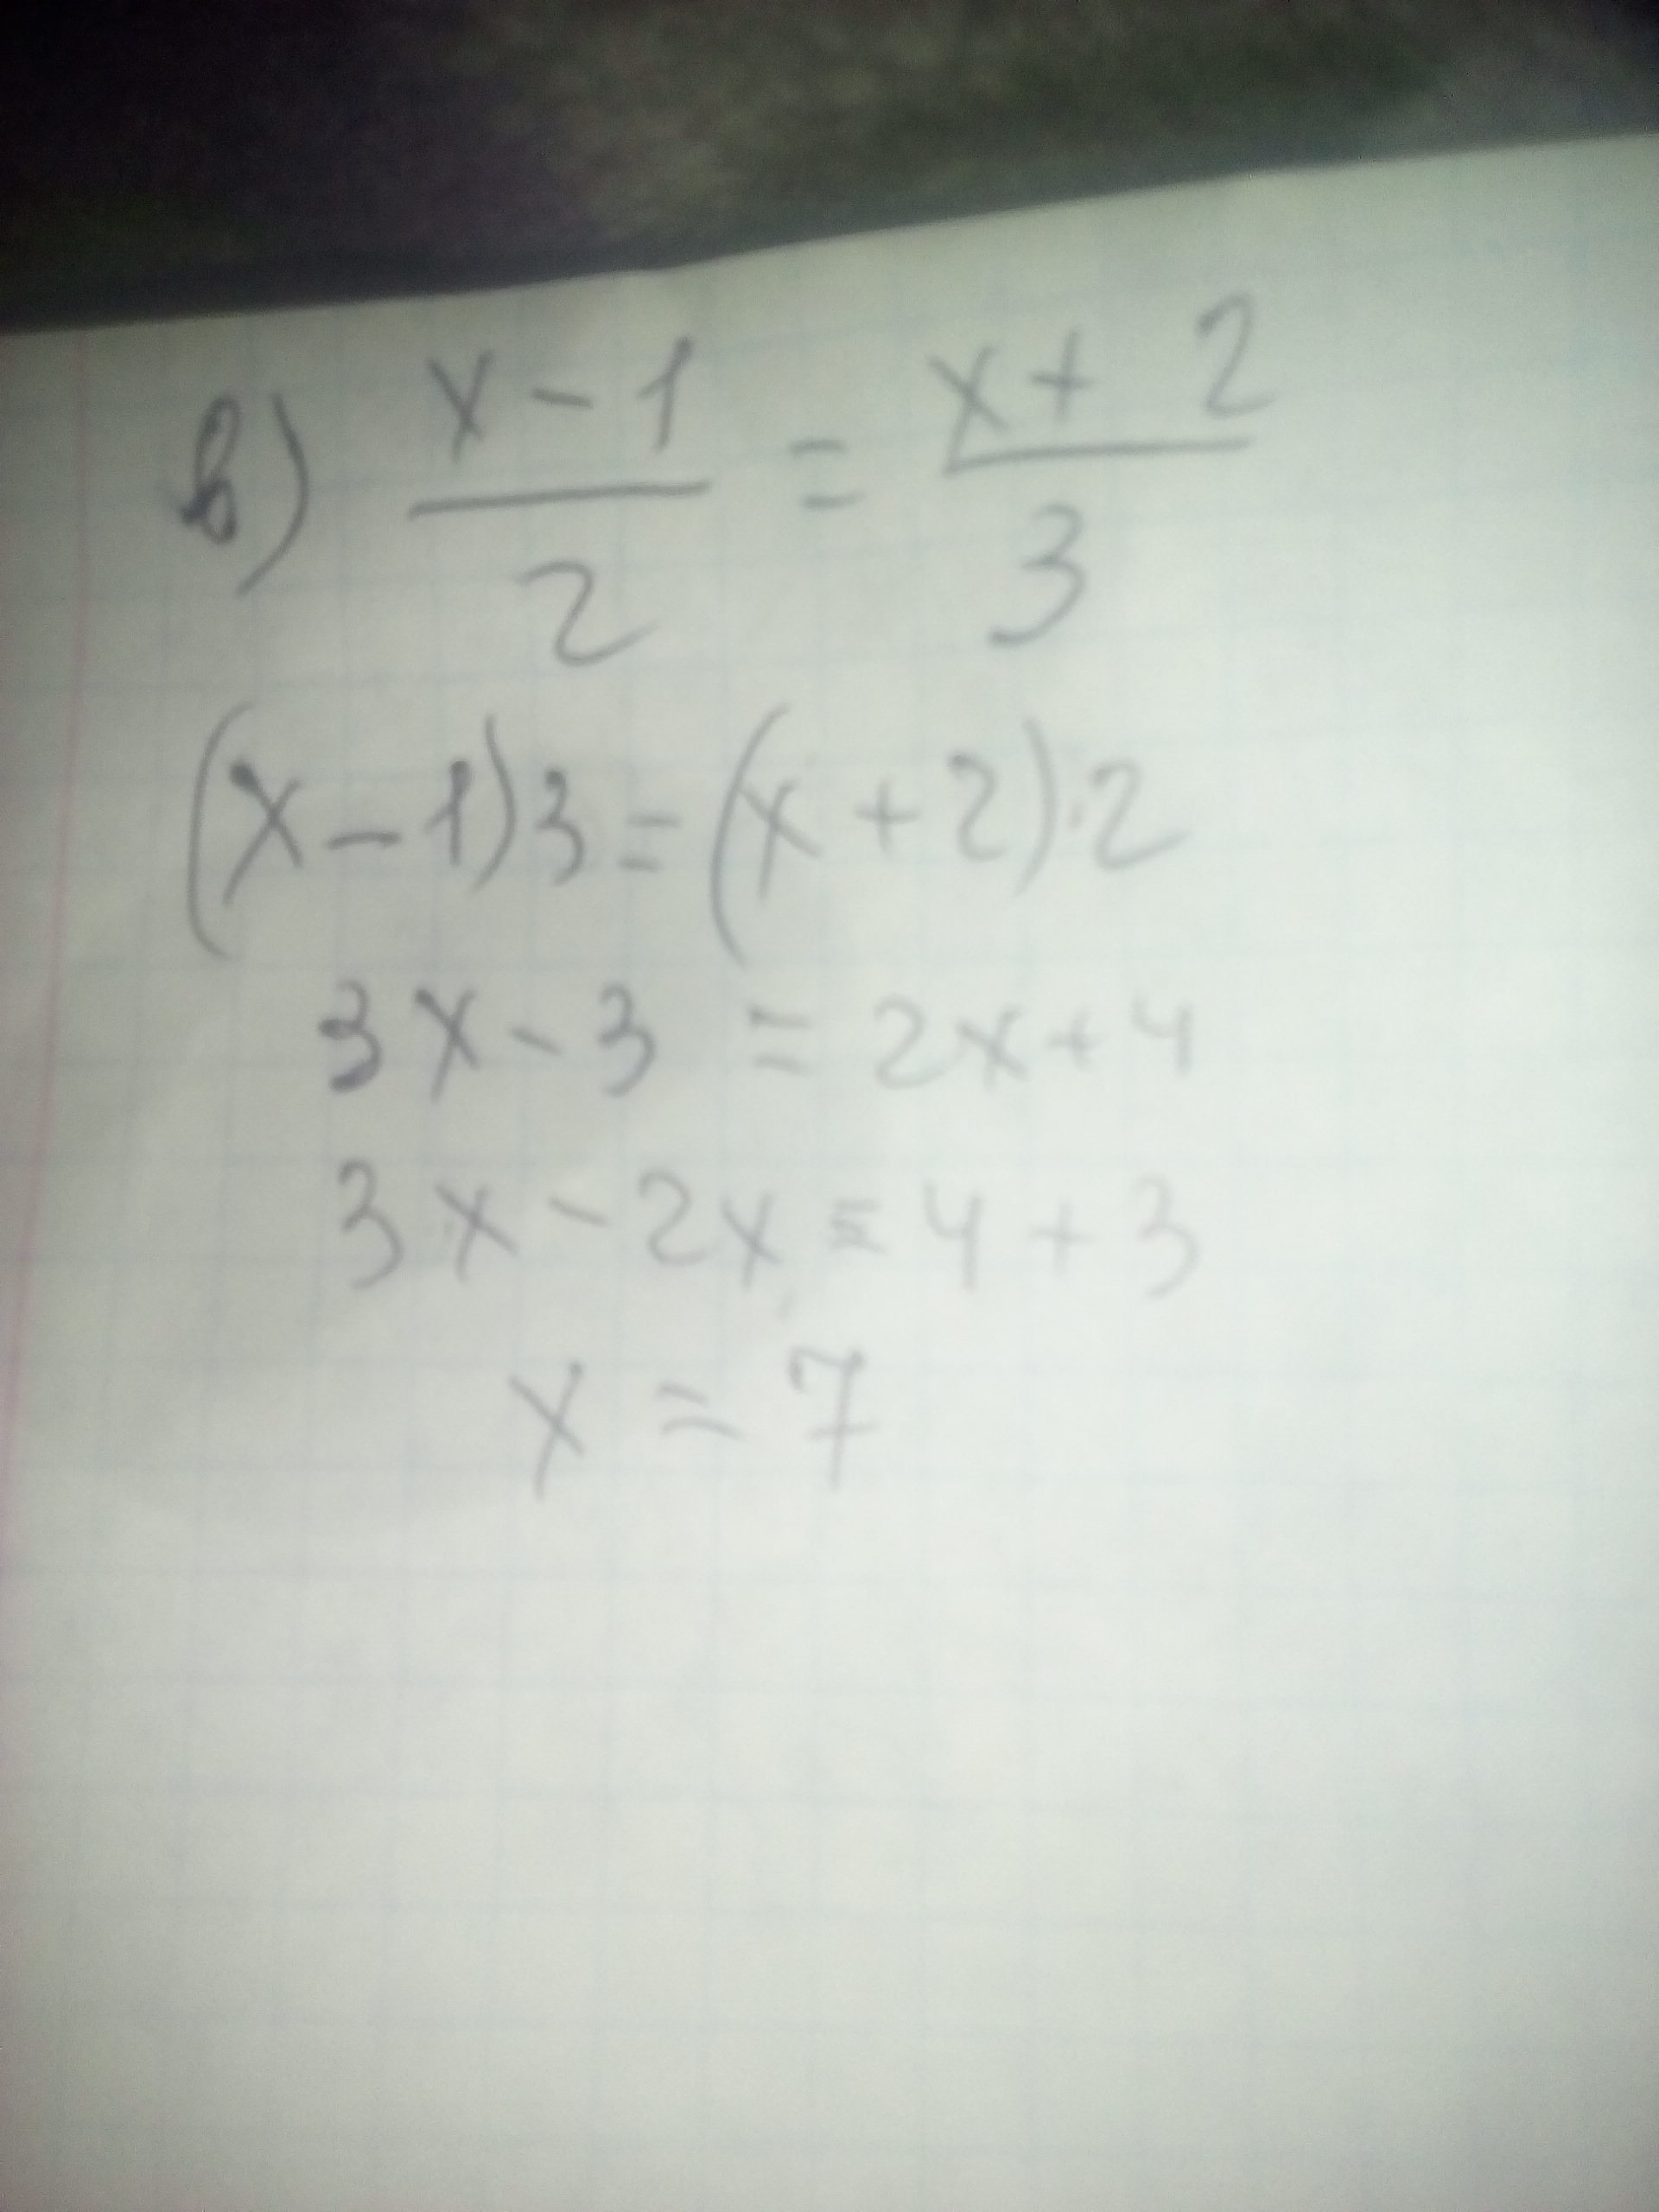 в) x - 1 / 2 = x + 2 / 3
(x - 1)3 = (x + 2)·2
3x - 3 = 2x + 4
3x - 2x = 4 + 3
x = 7